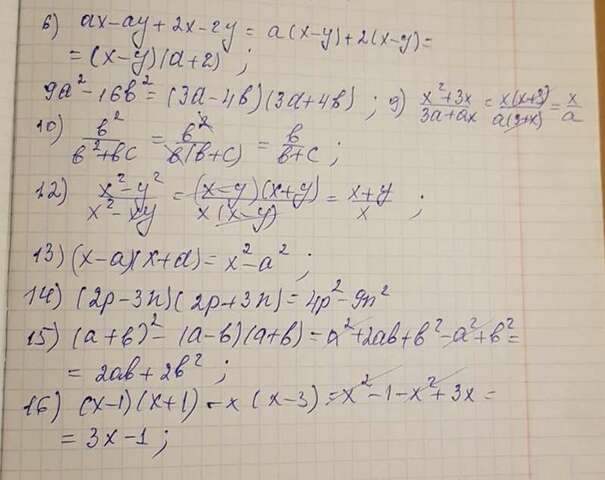 6) ax-ay+2x-2y = a(x-y)+2(x-y)=
= (x-y)(a+2) ;
9a²-16b² = (3a-4b)(3a+4b) ; 9) (x²+3x)/(3a+ax) = (x(x+3))/(a(3+x)) = x/a
10) b²/(b²+bc) = b²/(b(b+c)) = b/(b+c) ;
12) (x²-y²)/(x²-xy) = ((x-y)(x+y))/(x(x-y)) = (x+y)/x ;
13) (x-a)(x+a) = x²-a² ;
14) (2p-3n)(2p+3n) = 4p²-9n²
15) (a+b)²-(a-b)(a+b) = a²+2ab+b²-a²+b² =
= 2ab+2b² ;
16) (x-1)(x+1)-x(x-3) = x²-1-x²+3x =
= 3x-1 ;